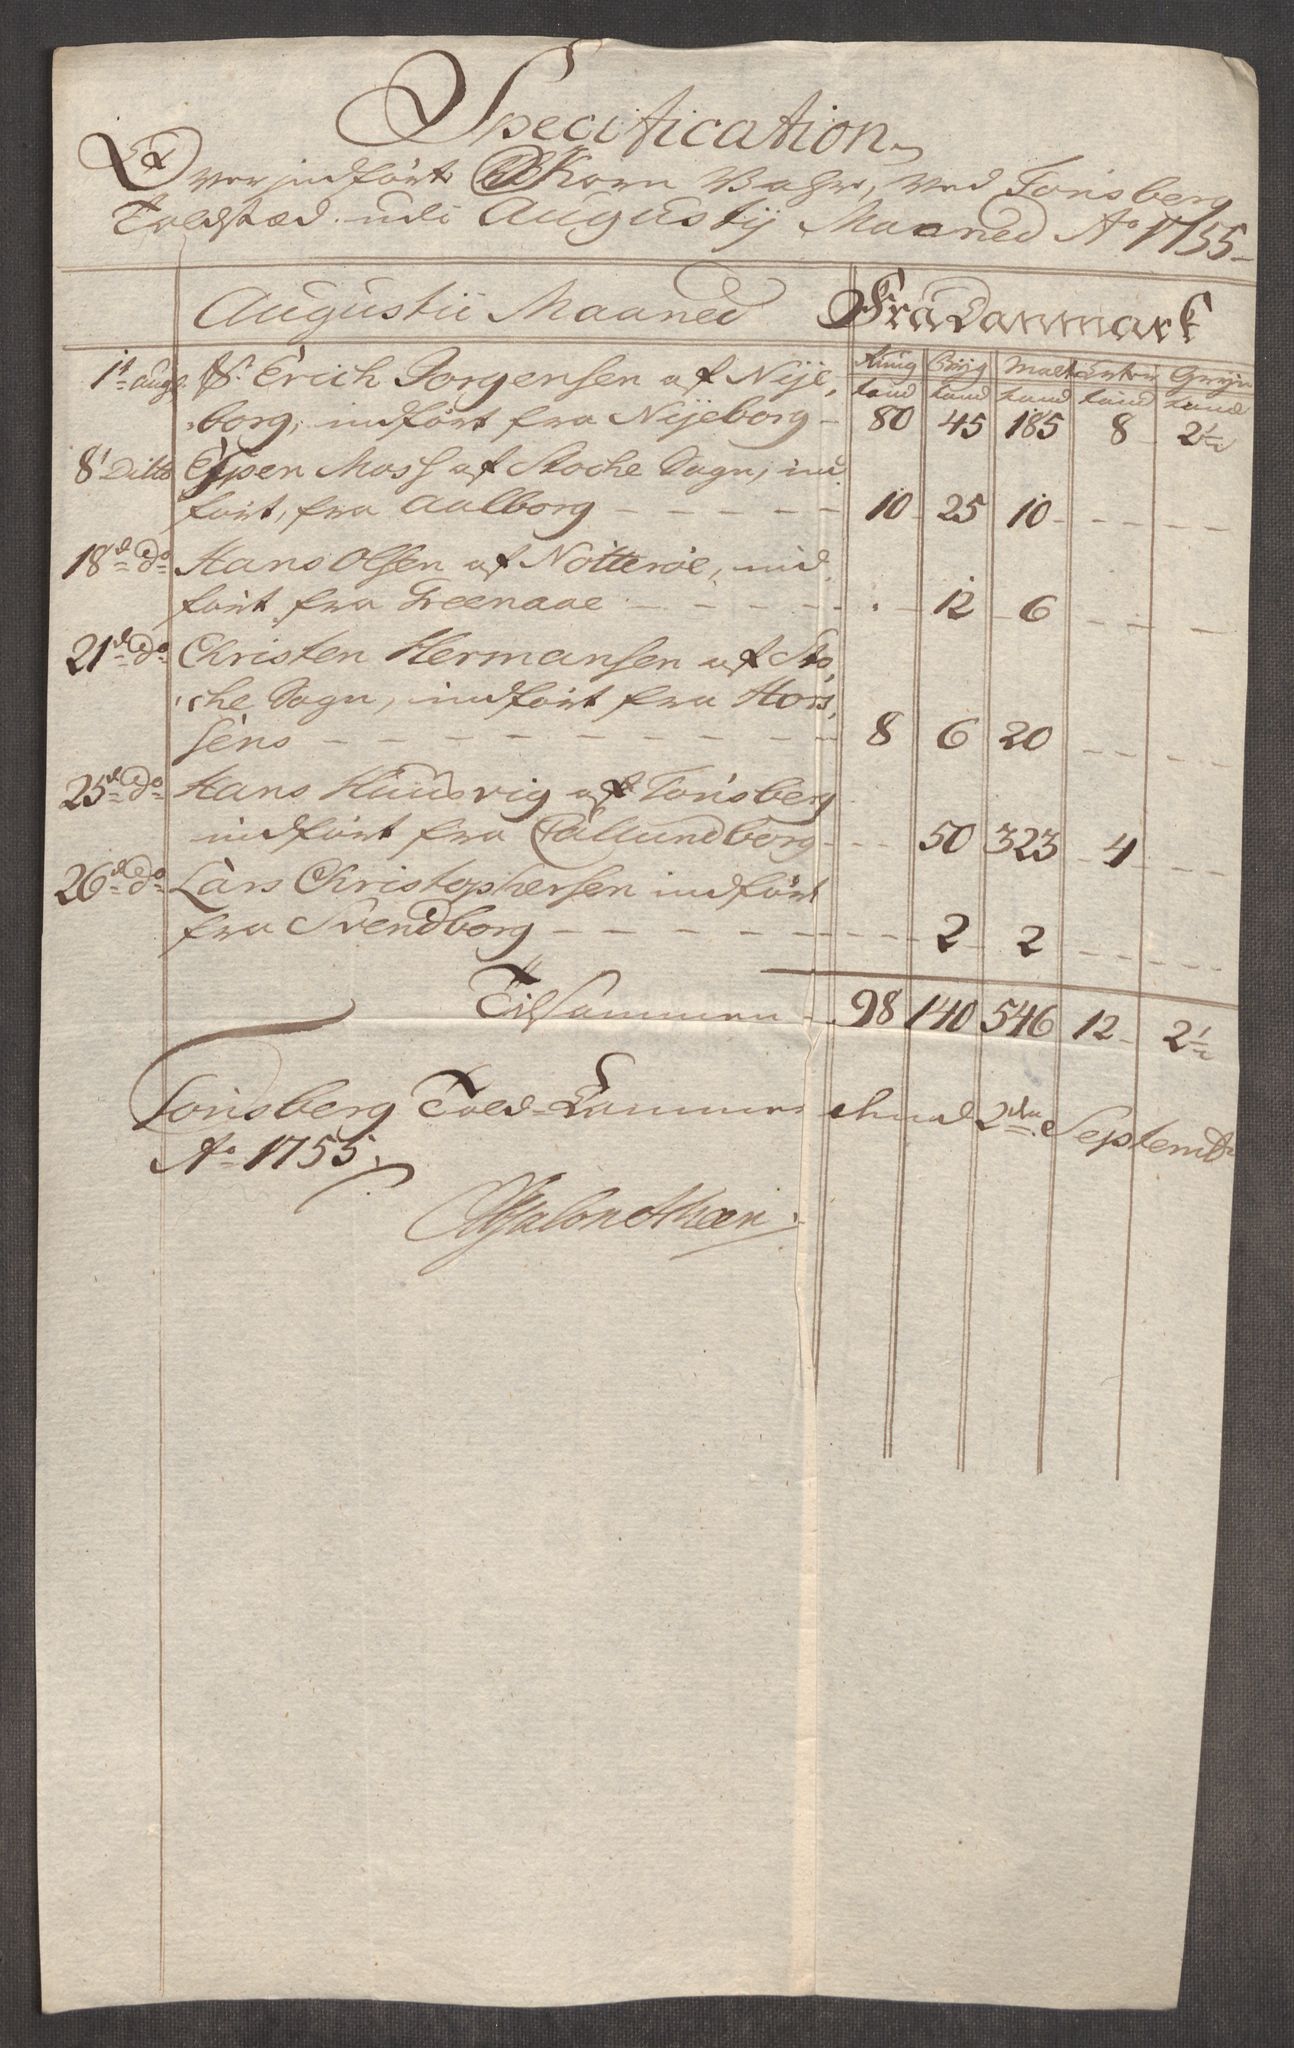 Specification
Over indført Korn Vahre, ved Tonsberg
Toldstæd udi Augustij Maaned Ao 1755
Augustii Maaned Fra Danmark
Rug Byg Malt Erter Gryn
tønd tønd tønd tønd tønd
1t aug. S. Erich Jorgensen af Nije,
borg, indført fra Nijeborg 80 45 185 8 2½
8t Ditto Espen Moss af Stoche Sogn, ind
ført, fra Aalborg 10 25 10
18de do Hans Olsen af Nötteröe, ind
ført fra Greenaae 12 6
21de do Christen Hermansen af Sto,
che Sogn, indført fra Hors,
sens 8 6 20
25de do Hans Huusvig af Tonsberg
indført fra Callundborg 50 323 4
26de do Lars Christophersen indført
fra Svendborg 2 2
Tilsammen 98 140 546 12 2½
Tonsberg Told-Cammer 2den Septembr
Ao 1755.